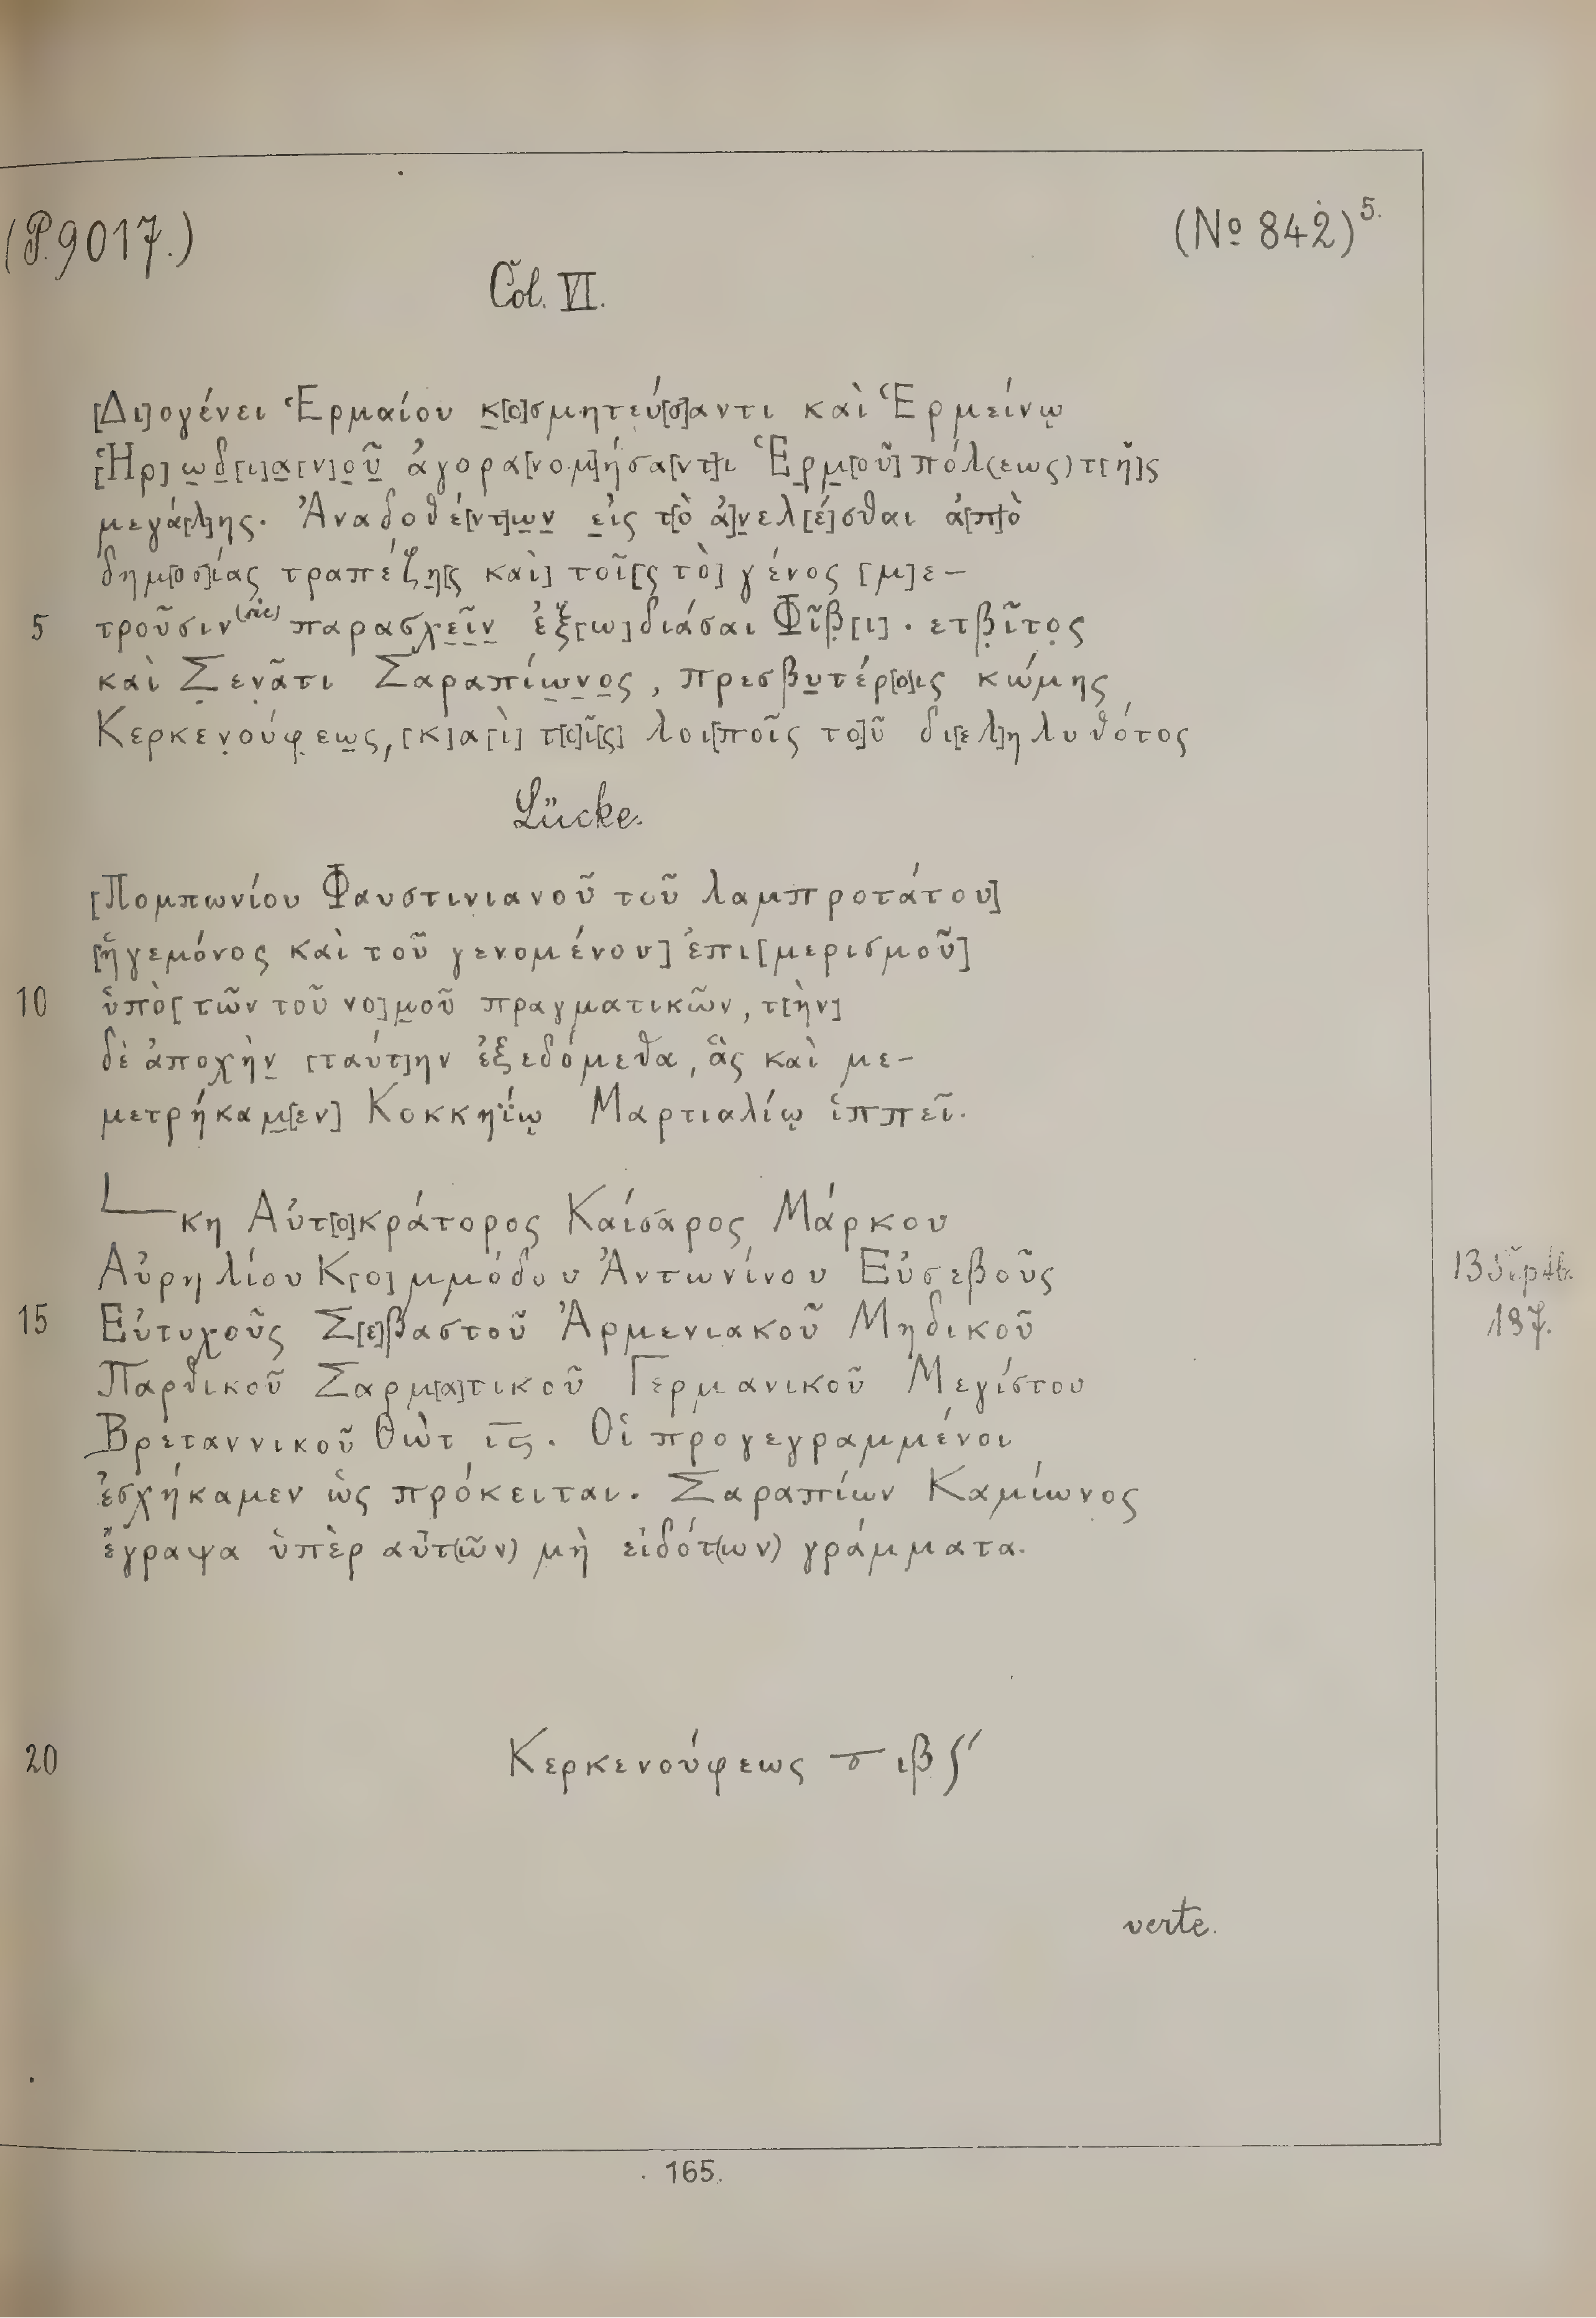 (P. 9017.)
(No 842) 5.
Col. VI.
[Δι]ογένει Ἑρμαίου κ[ο]σμητεύ[σ]αντι καὶ Ἑρμείνῳ
[Ἡρ]ωδ[ι]α[ν]οῦ ἀγορα[νομ]ήσα[ντ]ι Ἑρμ[οῦ] πόλ(εως) τ[ῆ]ς
μεγά[λ]ης. Ἀναδοθέ[ντ]ων εἰς τ[ὸ ἀ]νελ[έ]σθαι ἀ[π]ὸ
δημ[οσ]ίας τραπέζη[ς καὶ] τοῖ[ς τὸ] γένος [μ]ε-
5 τροῦσιν (sic) παρασχεῖν ἐξ[ω]διάσαι Φῖβ[ι] . ετβῖτος
καὶ Σενᾶτι Σαραπίωνος, πρεσβυτέρ[ο]ις κώμης
Κερκενούφεως, [κ]α[ὶ] τ[ο]ῖ[ς] λοι[ποῖς το]ῦ δι[ελ]ηλυθότος
Lücke.
[Πομπωνίου Φαυστινιανοῦ τοῦ λαμπροτάτου]
[ἡγεμόνος καὶ τοῦ γενομένου] ἐπι[μερισμοῦ]
10 ὑπὸ [τῶν τοῦ νο]μοῦ πραγματικῶν, τ[ὴν]
δὲ ἀποχὴν [ταύτ]ην ἐξεδόμεθα, ἃς καὶ με-
μετρήκαμ[εν] Κοκκηΐῳ Μαρτιαλίῳ ἱππεῖ.
L κη Αὐτ[ο]κράτορος Καίσαρος Μάρκου
Αὐρηλίου Κ[ο]μμόδου Ἀντωνίνου Εὐσεβοῦς
13 Sptb.
15 Εὐτυχοῦς Σ[ε]βαστοῦ Ἀρμενιακοῦ Μηδικοῦ
187.
Παρθικοῦ Σαρμ[α]τικοῦ Γερμανικοῦ Μεγίστου
Βρεταννικοῦ Θὼτ ις. Οἱ προγεγραμμένοι
ἐσχήκαμεν ὡς πρόκειται. Σαραπίων Καμίωνος
ἔγραψα ὑπὲρ αὐτ(ῶν) μὴ εἰδότ(ων) γράμματα.
20 Κερκενούφεως ιβ
verte.
165.